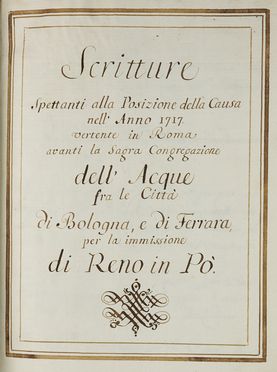 Scritture
Spettanti alla Posizione della Causa
nell' Anno 1717.
vertente in Roma
avanti la Sagra Congregazione
dell' Acque
fra le Città
di Bologna, e di Ferrara,
per la immissione
di Reno in Pò.